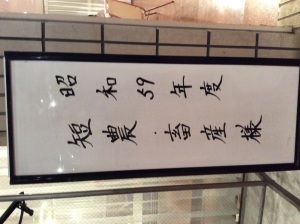 昭和59年度
短農·畜産様